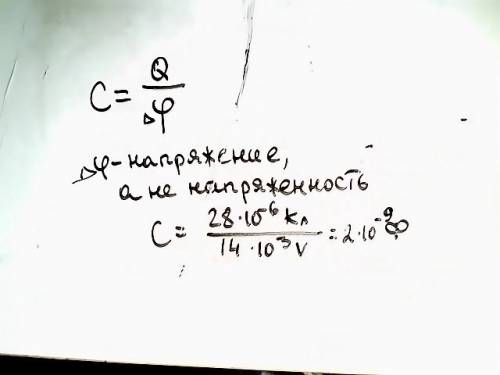 C = Q / Δφ
Δφ - напряжение,
а не напряженность
C = 28·10⁻⁶ Кл / 14·10³ V = 2·10⁻⁹